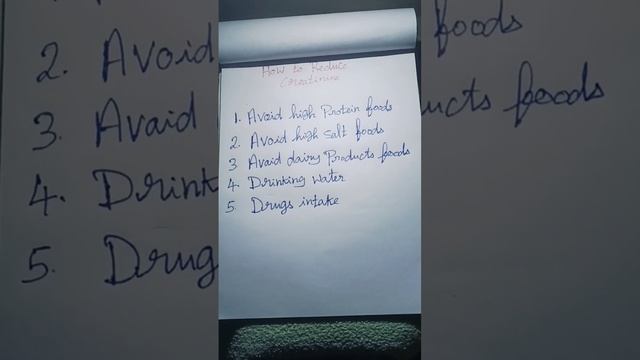 How to Reduce
Creatinine
1. Avoid high Protein foods
2. Avoid high salt foods
3 Avaid dairy Products foods
4. Drinking water
5. Drugs intake
2. Avoid
foods
3. Avaid
ucts foods
4. Drink
5. Drug